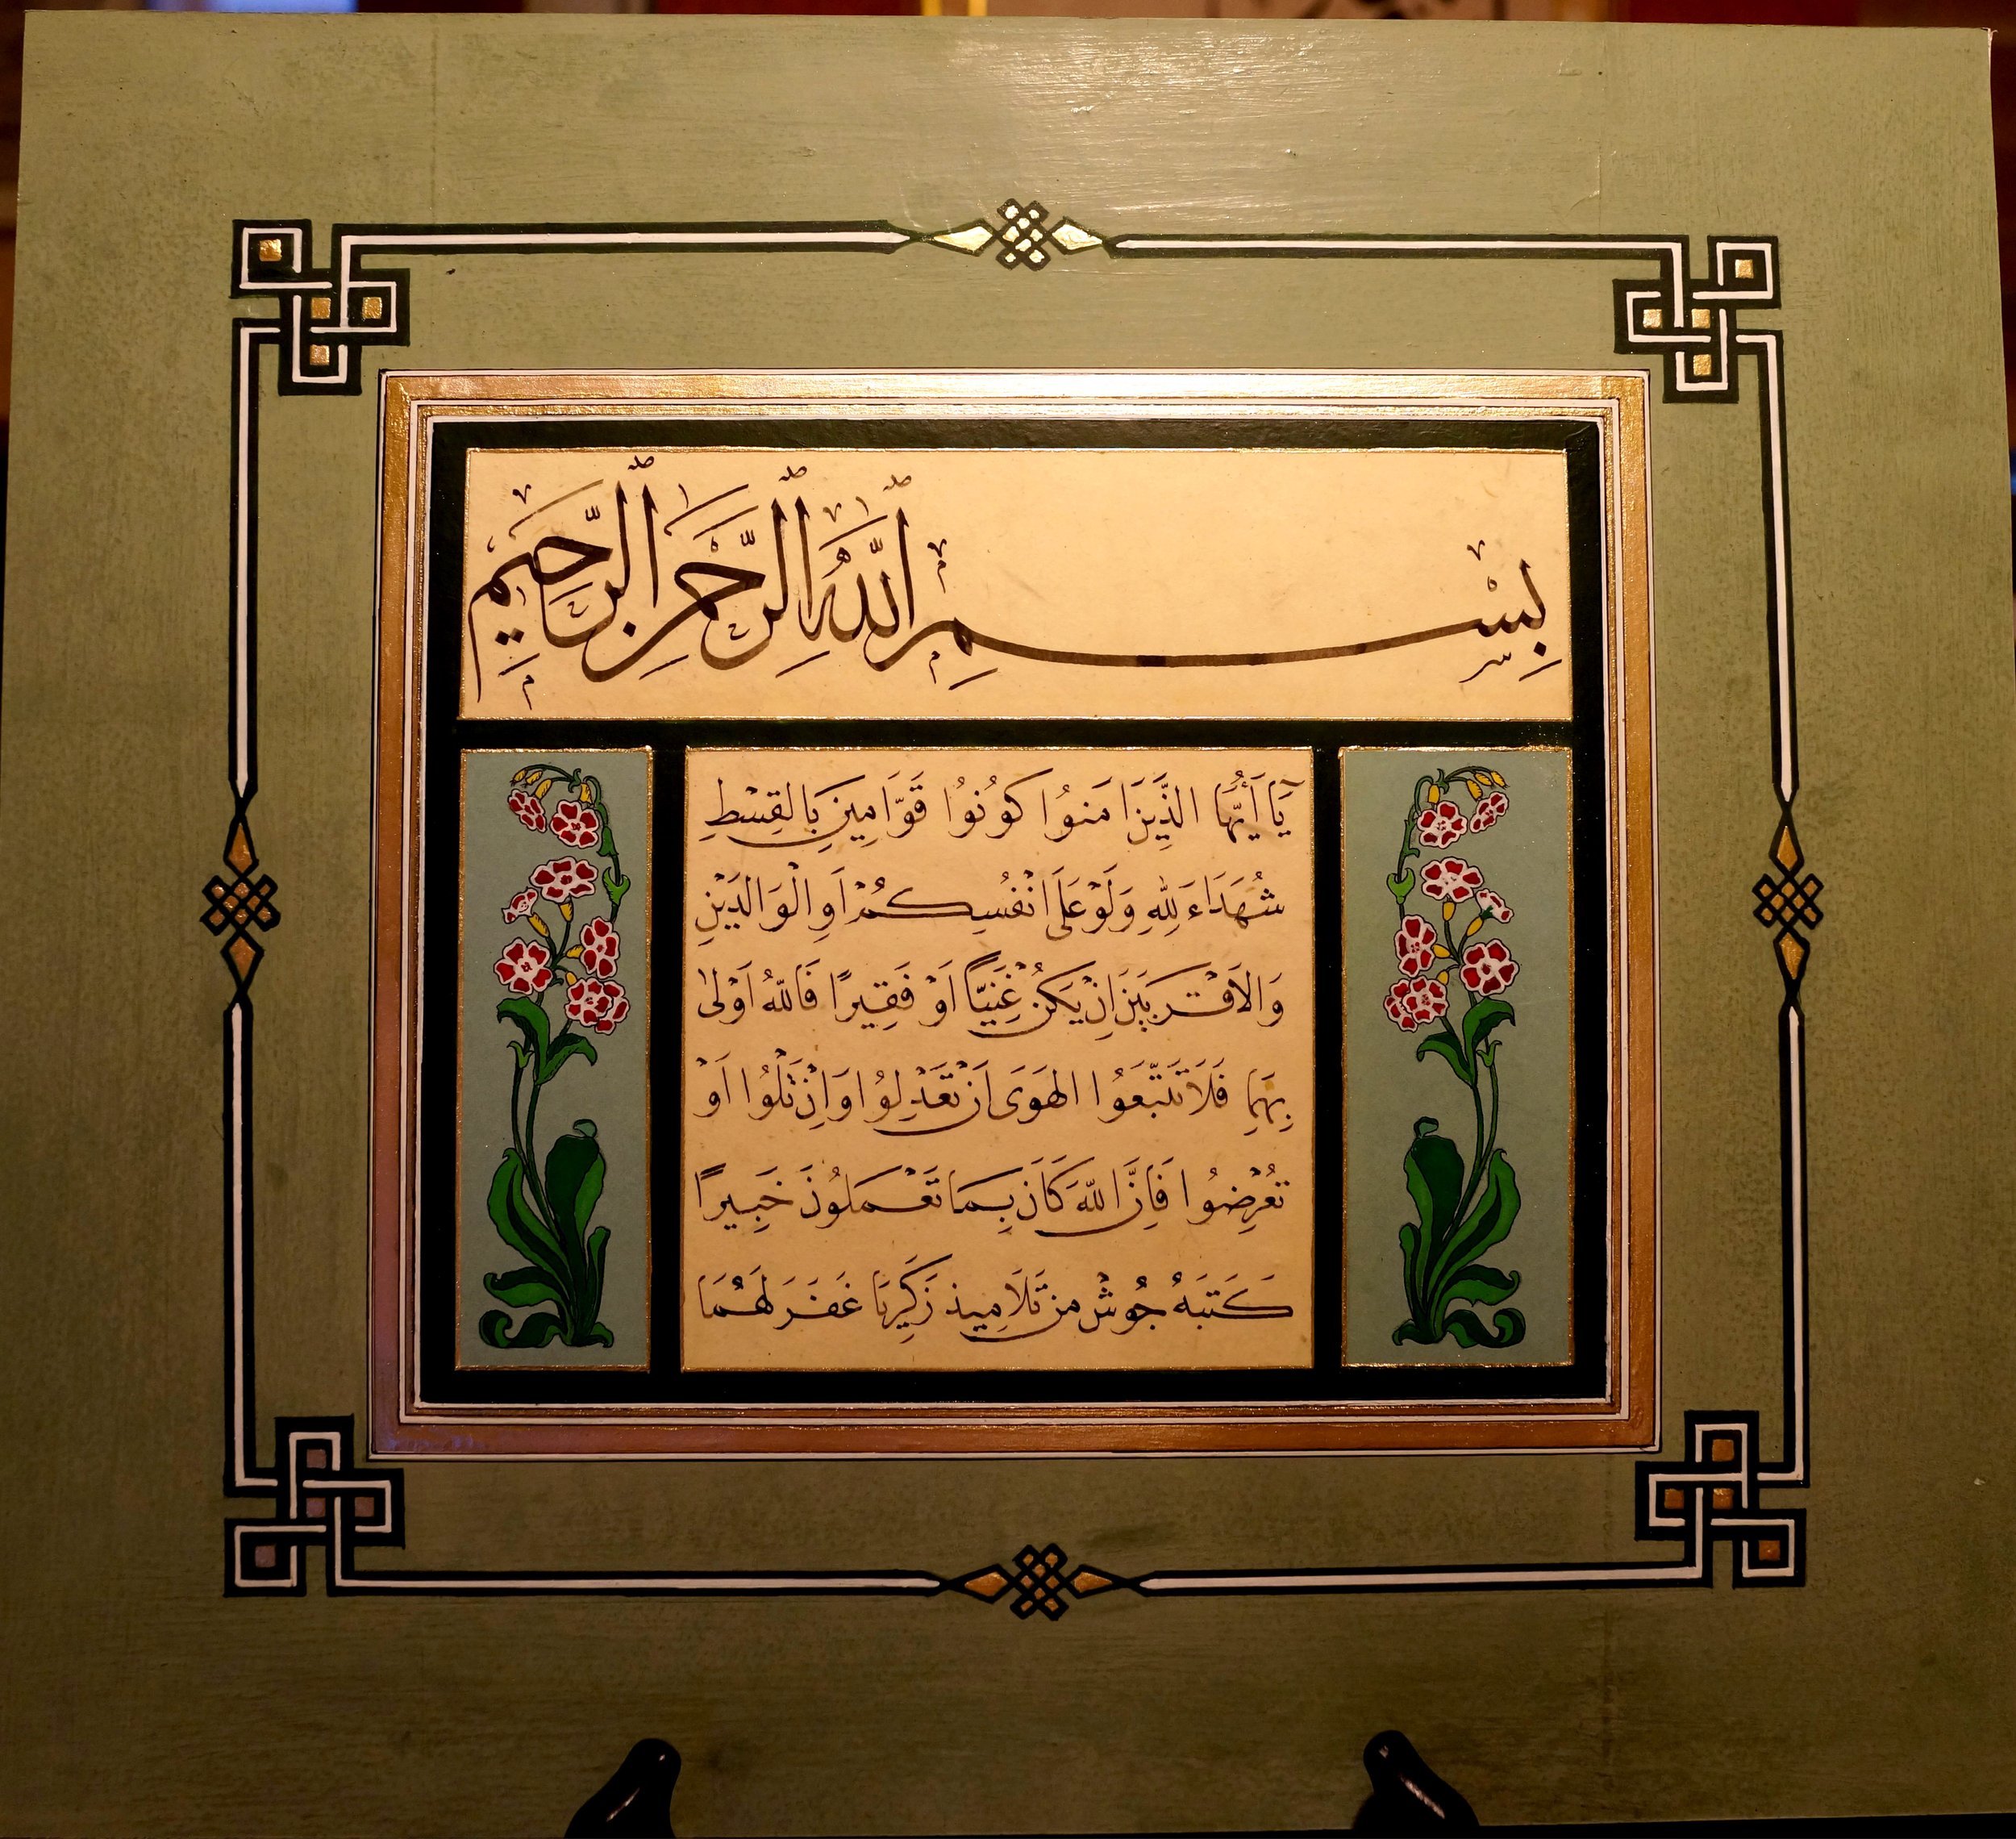 بِسْمِ ٱللَّهِ ٱلرَّحْمٰنِ ٱلرَّحِيمِ
يَا أَيُّهَا الَّذِينَ اٰمَنُوا كُونُوا قَوَّامِينَ بِالْقِسْطِ
شُهَدَاءَ لِلّٰهِ وَلَوْ عَلَى اَنْفُسِكُمْ اَوِ الْوَالِدَيْنِ
وَالاَقْرَبِينَ اِنْ يَكُنْ غَنِيًّا اَوْ فَقِيرًا فَاللّٰهُ اَوْلىٰ
بِهِمَا فَلَا تَتَّبِعُوا الهَوَى اَنْ تَعْدِلُوا وَاِنْ تَلْوُا اَوْ
تُعْرِضُوا فَاِنَّ اللّٰهَ كَانَ بِمَا تَعْمَلُونَ خَبِيرًا
كَتَبَهُ جُوشْ مِن تَلَامِيذ زَكَرِيَّا غَفَرَ لَهُمَا